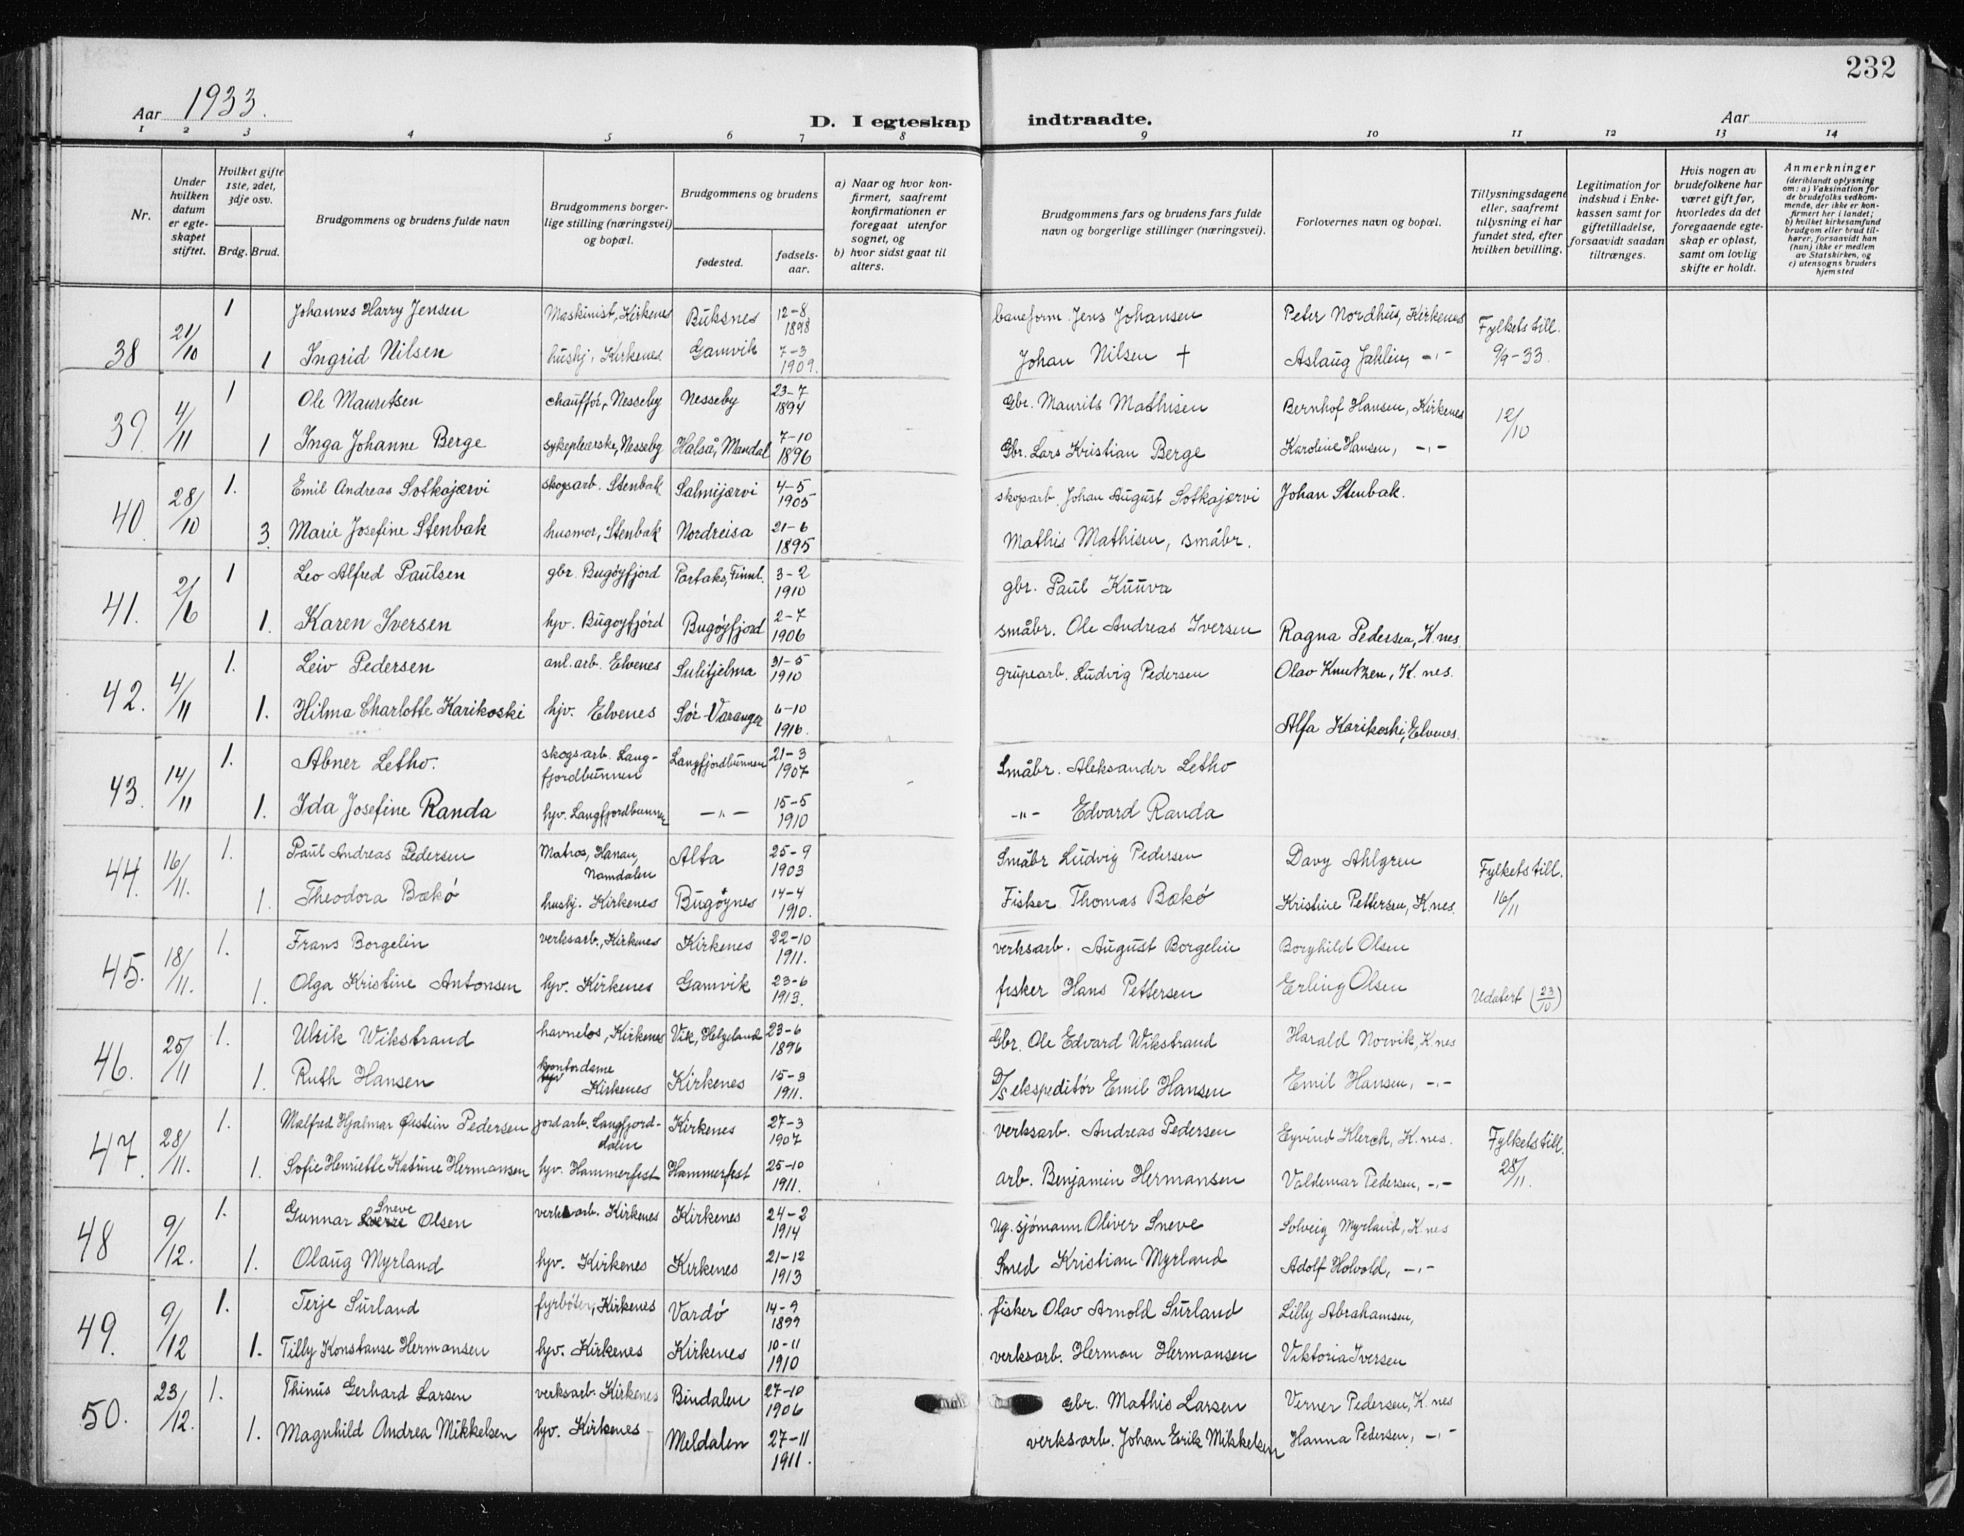 232
Aar 1933. D. I egteskap indtraadte. Aar
1 2 3 4 5 6 7 8 9 10 11 12 13 14
Nr.
Under hvilken datum er egteskapet stiftet.
Hvilket gifte 1ste, 2det, 3dje osv.
Brdg. Brud.
Brudgommens og brudens fulde navn
Brudgommens borgerlige stilling (næringsvei) og bopæl.
Brudgommens og brudens
fødested. fødselsaar.
a) Naar og hvor konfirmert, saafremt konfirmationen er foregaat utenfor sognet, og
b) hvor sidst gaat til alters.
Brudgommens fars og brudens fars fulde navn og borgerlige stillinger (næringsvei).
Forlovernes navn og bopæl.
Tillysningsdagene eller, saafremt tillysning ei har fundet sted, efter hvilken bevilling.
Legitimation for indskud i Enkekassen samt for giftetilladelse, forsaavidt saadan tiltrænges.
Hvis nogen av brudefolkene har været gift før, hvorledes da det foregaaende egteskap er opløst, samt om lovlig skifte er holdt.
Anmerkninger (deriblandt oplysning om: a) Vaksination for de brudefolks vedkommende, der ikke er konfirmert her i landet; b) hvilket kirkesamfund brudgom eller brud tilhører, forsaavidt han (hun) ikke er medlem av Statskirken, og c) utensogns bruders hjemsted
38 21/10 1 Johannes Harry Jensen Maskinist, Kirkenes Buksnes 12-8 1898 baneform. Jens Johansen Peter Nordhus, Kirkenes Fylkets till.
1 Ingrid Nilsen hushj. Kirkenes Gamvik 7-3 1909. Johan Nilsen † Aslaug Jahlin, -"- 9/9-33.
39. 4/11 1 Ole Mauritsen chauffør, Nesseby Nesseby 23-7 1894 Gbr. Maurits Mathisen Bernhof Hansen, Kirkenes 12/10
1 Inga Johanne Berge sykepleierske, Nesseby Halså, Mandal 7-10 1896 Gbr. Lars Kristian Berge Karoline Hansen, -"-
40. 28/10 1. Emil Andreas Sotkajærvi skogsarb. Stenbak Salmijærvi 4-5 1905 skogsarb. Johan August Sotkajærvi Johan Stenbak.
3. Marie Josefine Stenbak husmor, Stenbak Nordreisa 21-6 1895 Mathis Mathisen, småbr.
41. 2/6 1 Leo Alfred Paulsen gbr. Bugøyfjord Portaks, Finnl. 3-2 1910 gbr. Paul Kuuva
1. Karen Iversen hjv. Bugøyfjord Bugøyfjord 2-7 1906 småbr. Ole Andreas Iversen Ragna Pedersen, K.nes.
42. 4/11 1. Leiv Pedersen anl. arb. Elvenes Sulitjelma 31-5 1910 grupearb. Ludvig Pedersen Olav Knutzen, K.nes.
1. Hilma Charlotte Karikoski hjv. Elvenes Sør-Varanger 6-10 1916. Alfa Karikoski, Elvenes.
43. 14/11 1. Abner Letho. skogsarb. Langfjordbunnen Langfjordbunnen 21-3 1907 Småbr. Aleksander Letho
1. Ida Josefine Randa hjv. Langfjordbunnen -"- 15-5 1910 -"- Edvard Randa
44. 16/11. 1. Paul Andreas Pedersen Matros, Hanan, Namdalen Alta 25-9 1903 Småbr Ludvig Pedersen Davy Ahlgren Fylkets till.
1. Theodora Bækø hushj. Kirkenes Bugøynes 14-4 1910. Fisker Thomas Bækø Kristine Pettersen, K.nes. 16/11
45. 18/11. 1. Frans Borgelin verksarb., Kirkenes Kirkenes 22-10 1911. verksarb. August Borgelin Borghild Olsen
1. Olga Kristine Antonsen hjv. Kirkenes Gamvik 23-6 1913. fisker Hans Pettersen Erling Olsen Udatert (23/10)
46. 25/11 1. Ulrik Wikstrand havnelos, Kirkenes Vik, Helgeland 23-6 1896 Gbr. Ole Edvard Wikstrand Harald Norvik, K.nes
1. Ruth Hansen kontordame Kirkenes Kirkenes 15-3 1911. D/S ekspeditør Emil Hansen Emil Hansen, -"-
47. 28/11. 1. Malfred Hjalmar Østein Pedersen jordarb. Langfjorddalen Kirkenes 27-3 1907 verksarb. Andreas Pedersen Eyvind Klerck, K.nes. Fylkets till.
1. Sofie Henriette Katrine Hermansen hjv. Hammerfest Hammerfest 25-10 1911. arb. Benjamin Hermansen Valdemar Pedersen, -"- 28/11.
48 9/12. 1. Gunnar Sneve Olsen verksarb. Kirkenes Kirkenes 24-2 1914 ug. sjømann Oliver Sneve Solveig Myrland, K.nes
1. Olaug Myrland hjv. Kirkenes Kirkenes 21-12 1913 Smed Kristian Myrland Adolf Holvold, -"-
49. 9/12 1. Terje Surland fyrbøter, Kirkenes Vardø 14-9 1899 fisker Olav Arnold Surland Lilly Abrahamsen,
1. Tilly Konstanse Hermansen hjv. Kirkenes Kirkenes 10-11 1910 verksarb. Herman Hermansen Viktoria Iversen
50. 23/12. 1. Thinus Gerhard Larsen verksarb Kirkenes Bindalen 27-10 1906 Gbr. Mathis Larsen Verner Pedersen, K.nes
1. Magnhild Andrea Mikkelsen hjv. Kirkenes Meldalen 27-11 1911. verksarb. Johan Erik Mikkelsen Hanna Pedersen, -"-